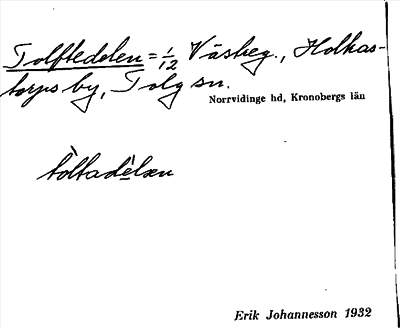 Tolftedelen = 1/12 Västreg., Holkas-
torps by, Tolg sn.
Norrvidinge hd, Kronobergs län
tòltadèlæn
Erik Johannesson 1932